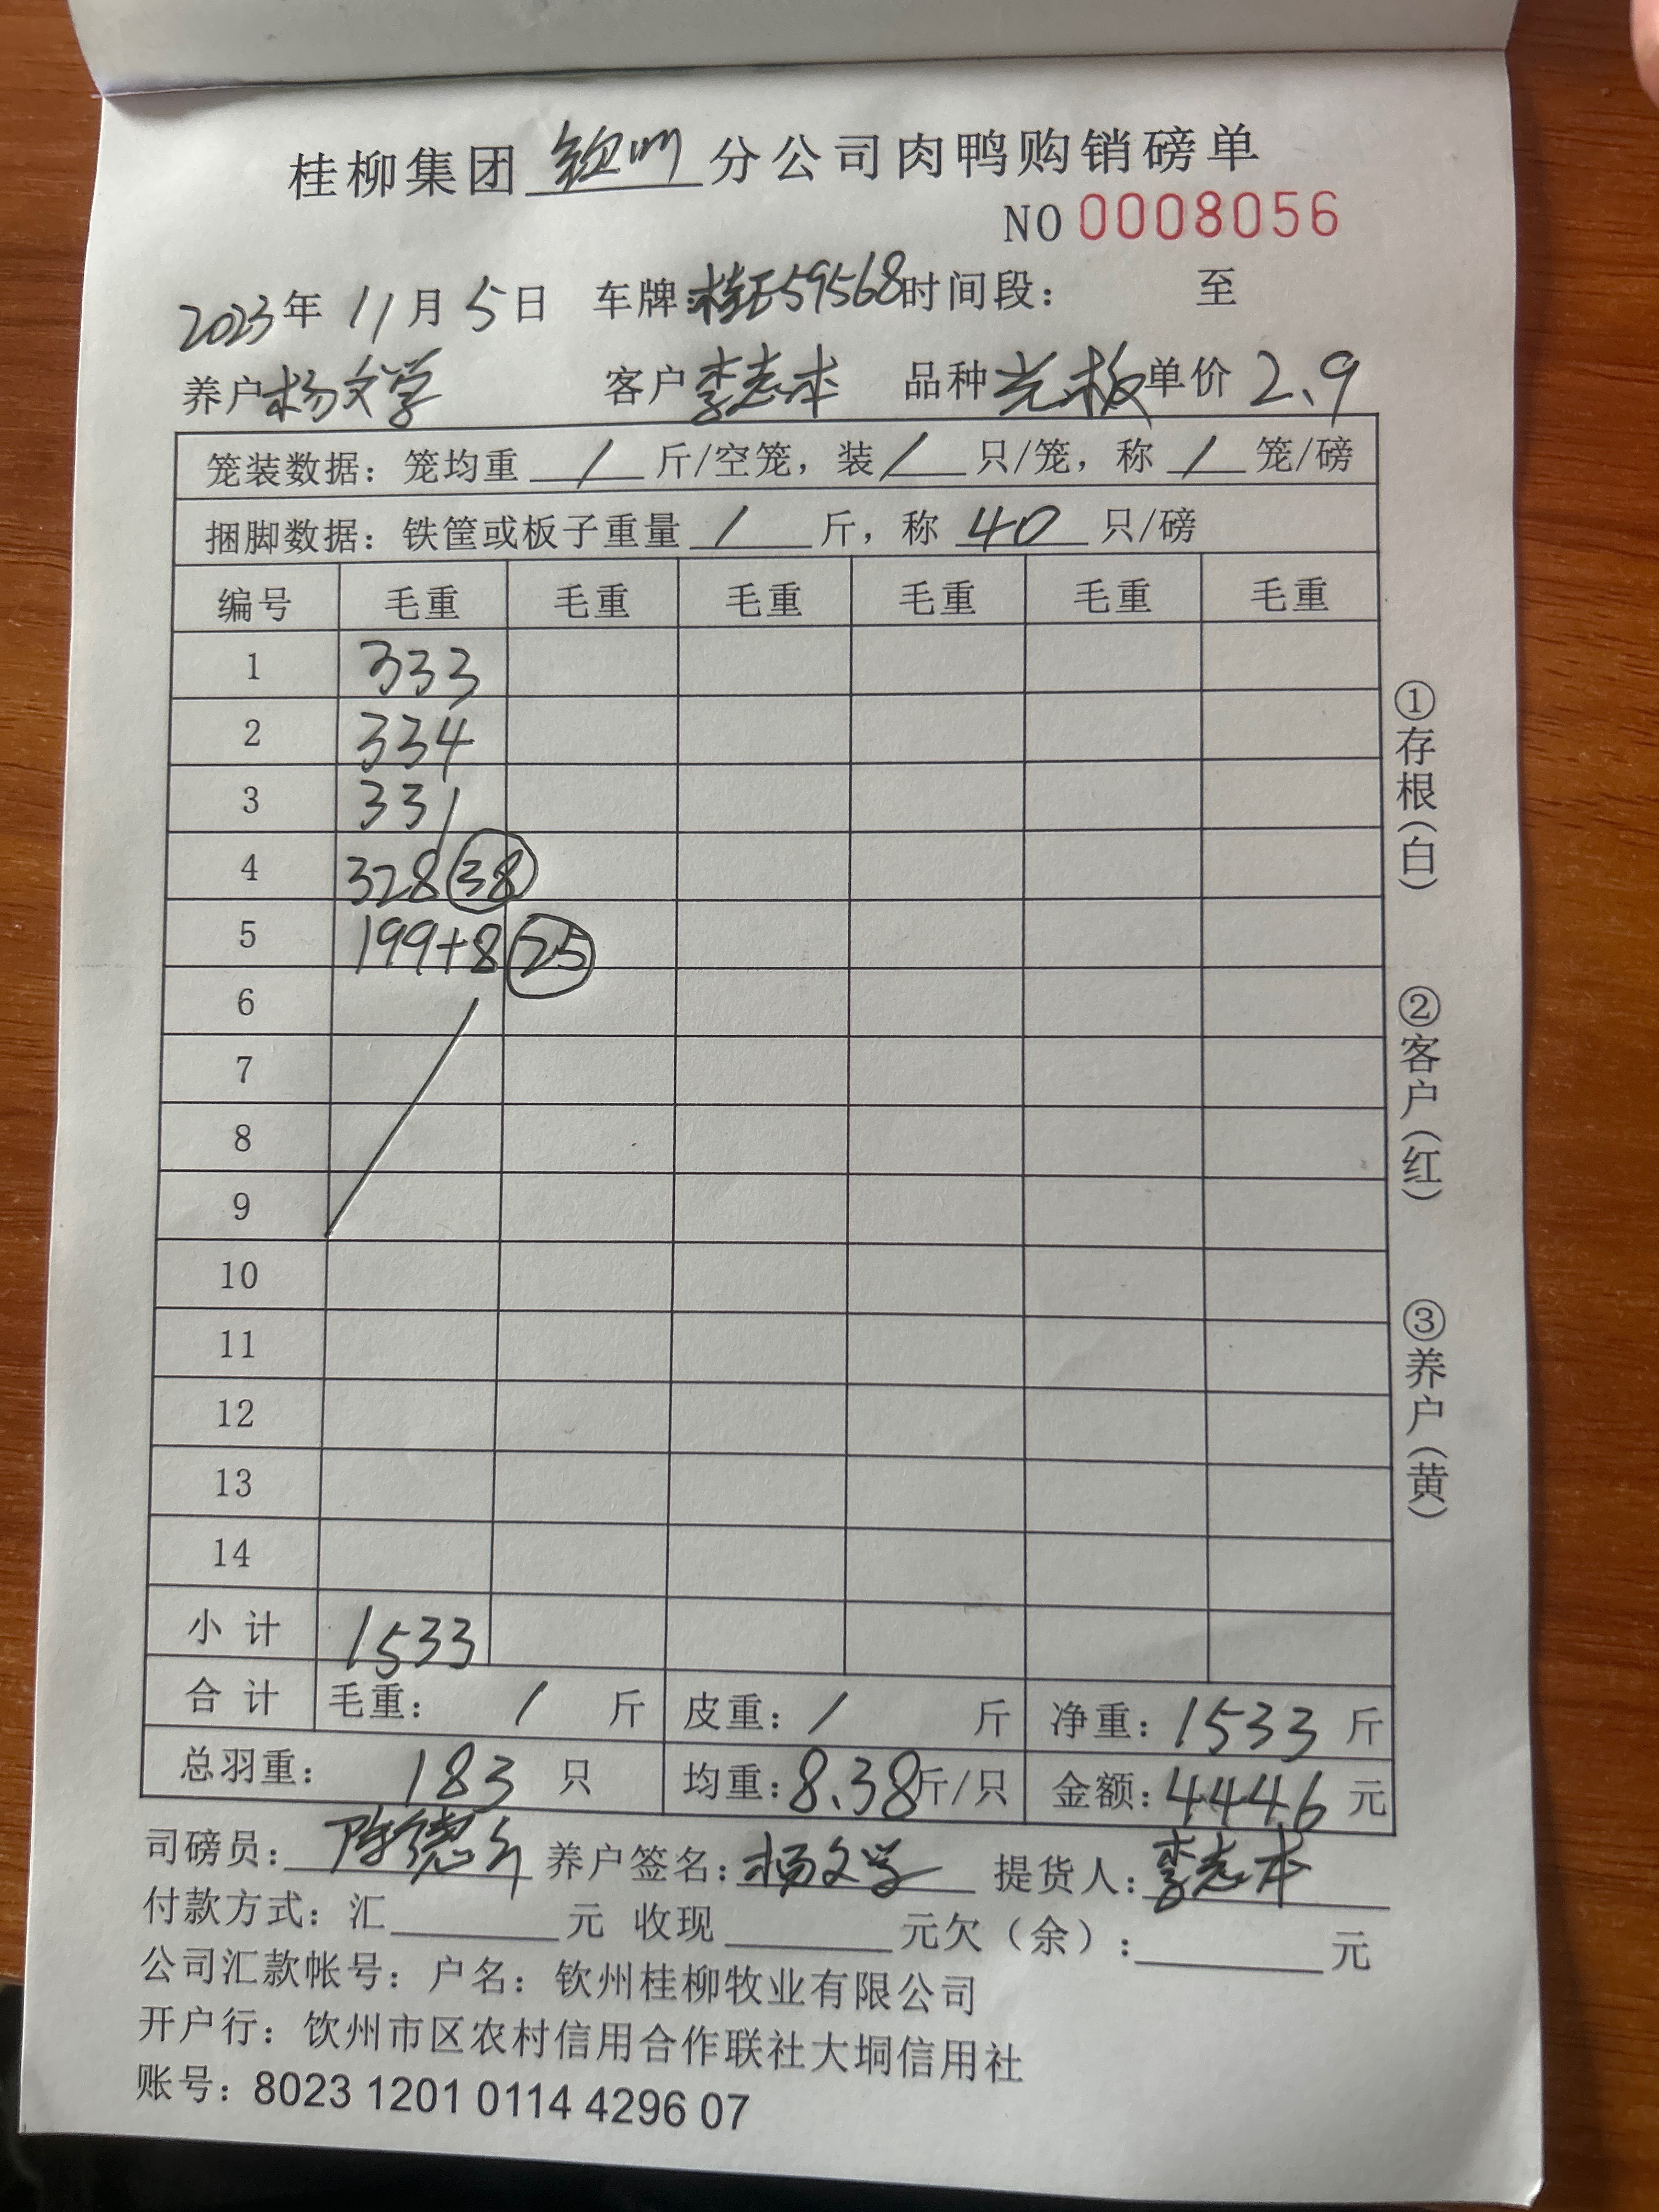 桂柳集团 钦州 分公司肉鸭购销磅单
NO 0008056
2023年 11月 5日 车牌:桂E59568 时间段: 至
养户 杨文学 客户 李志本 品种 光板 单价 2.9
笼装数据: 笼均重 / 斤/空笼, 装 / 只/笼, 称 / 笼/磅
捆脚数据: 铁筐或板子重量 / 斤, 称 40 只/磅
编号 毛重 毛重 毛重 毛重 毛重 毛重
1 333
2 334
3 331
4 328 38
5 199+8 25
6
7
8
9
10
11
12
13
14
小计 1533
合计 毛重: / 斤 皮重: / 斤 净重: 1533 斤
总羽重: 183 只 均重: 8.38 斤/只 金额: 4446 元
司磅员: 陈德 养户签名: 杨文学 提货人: 李志本
付款方式: 汇 元 收现 元欠(余): 元
公司汇款帐号: 户名: 钦州桂柳牧业有限公司
开户行: 饮州市区农村信用合作联社大垌信用社
账号: 8023 1201 0114 4296 07
①存根(白)
②客户(红)
③养户(黄)